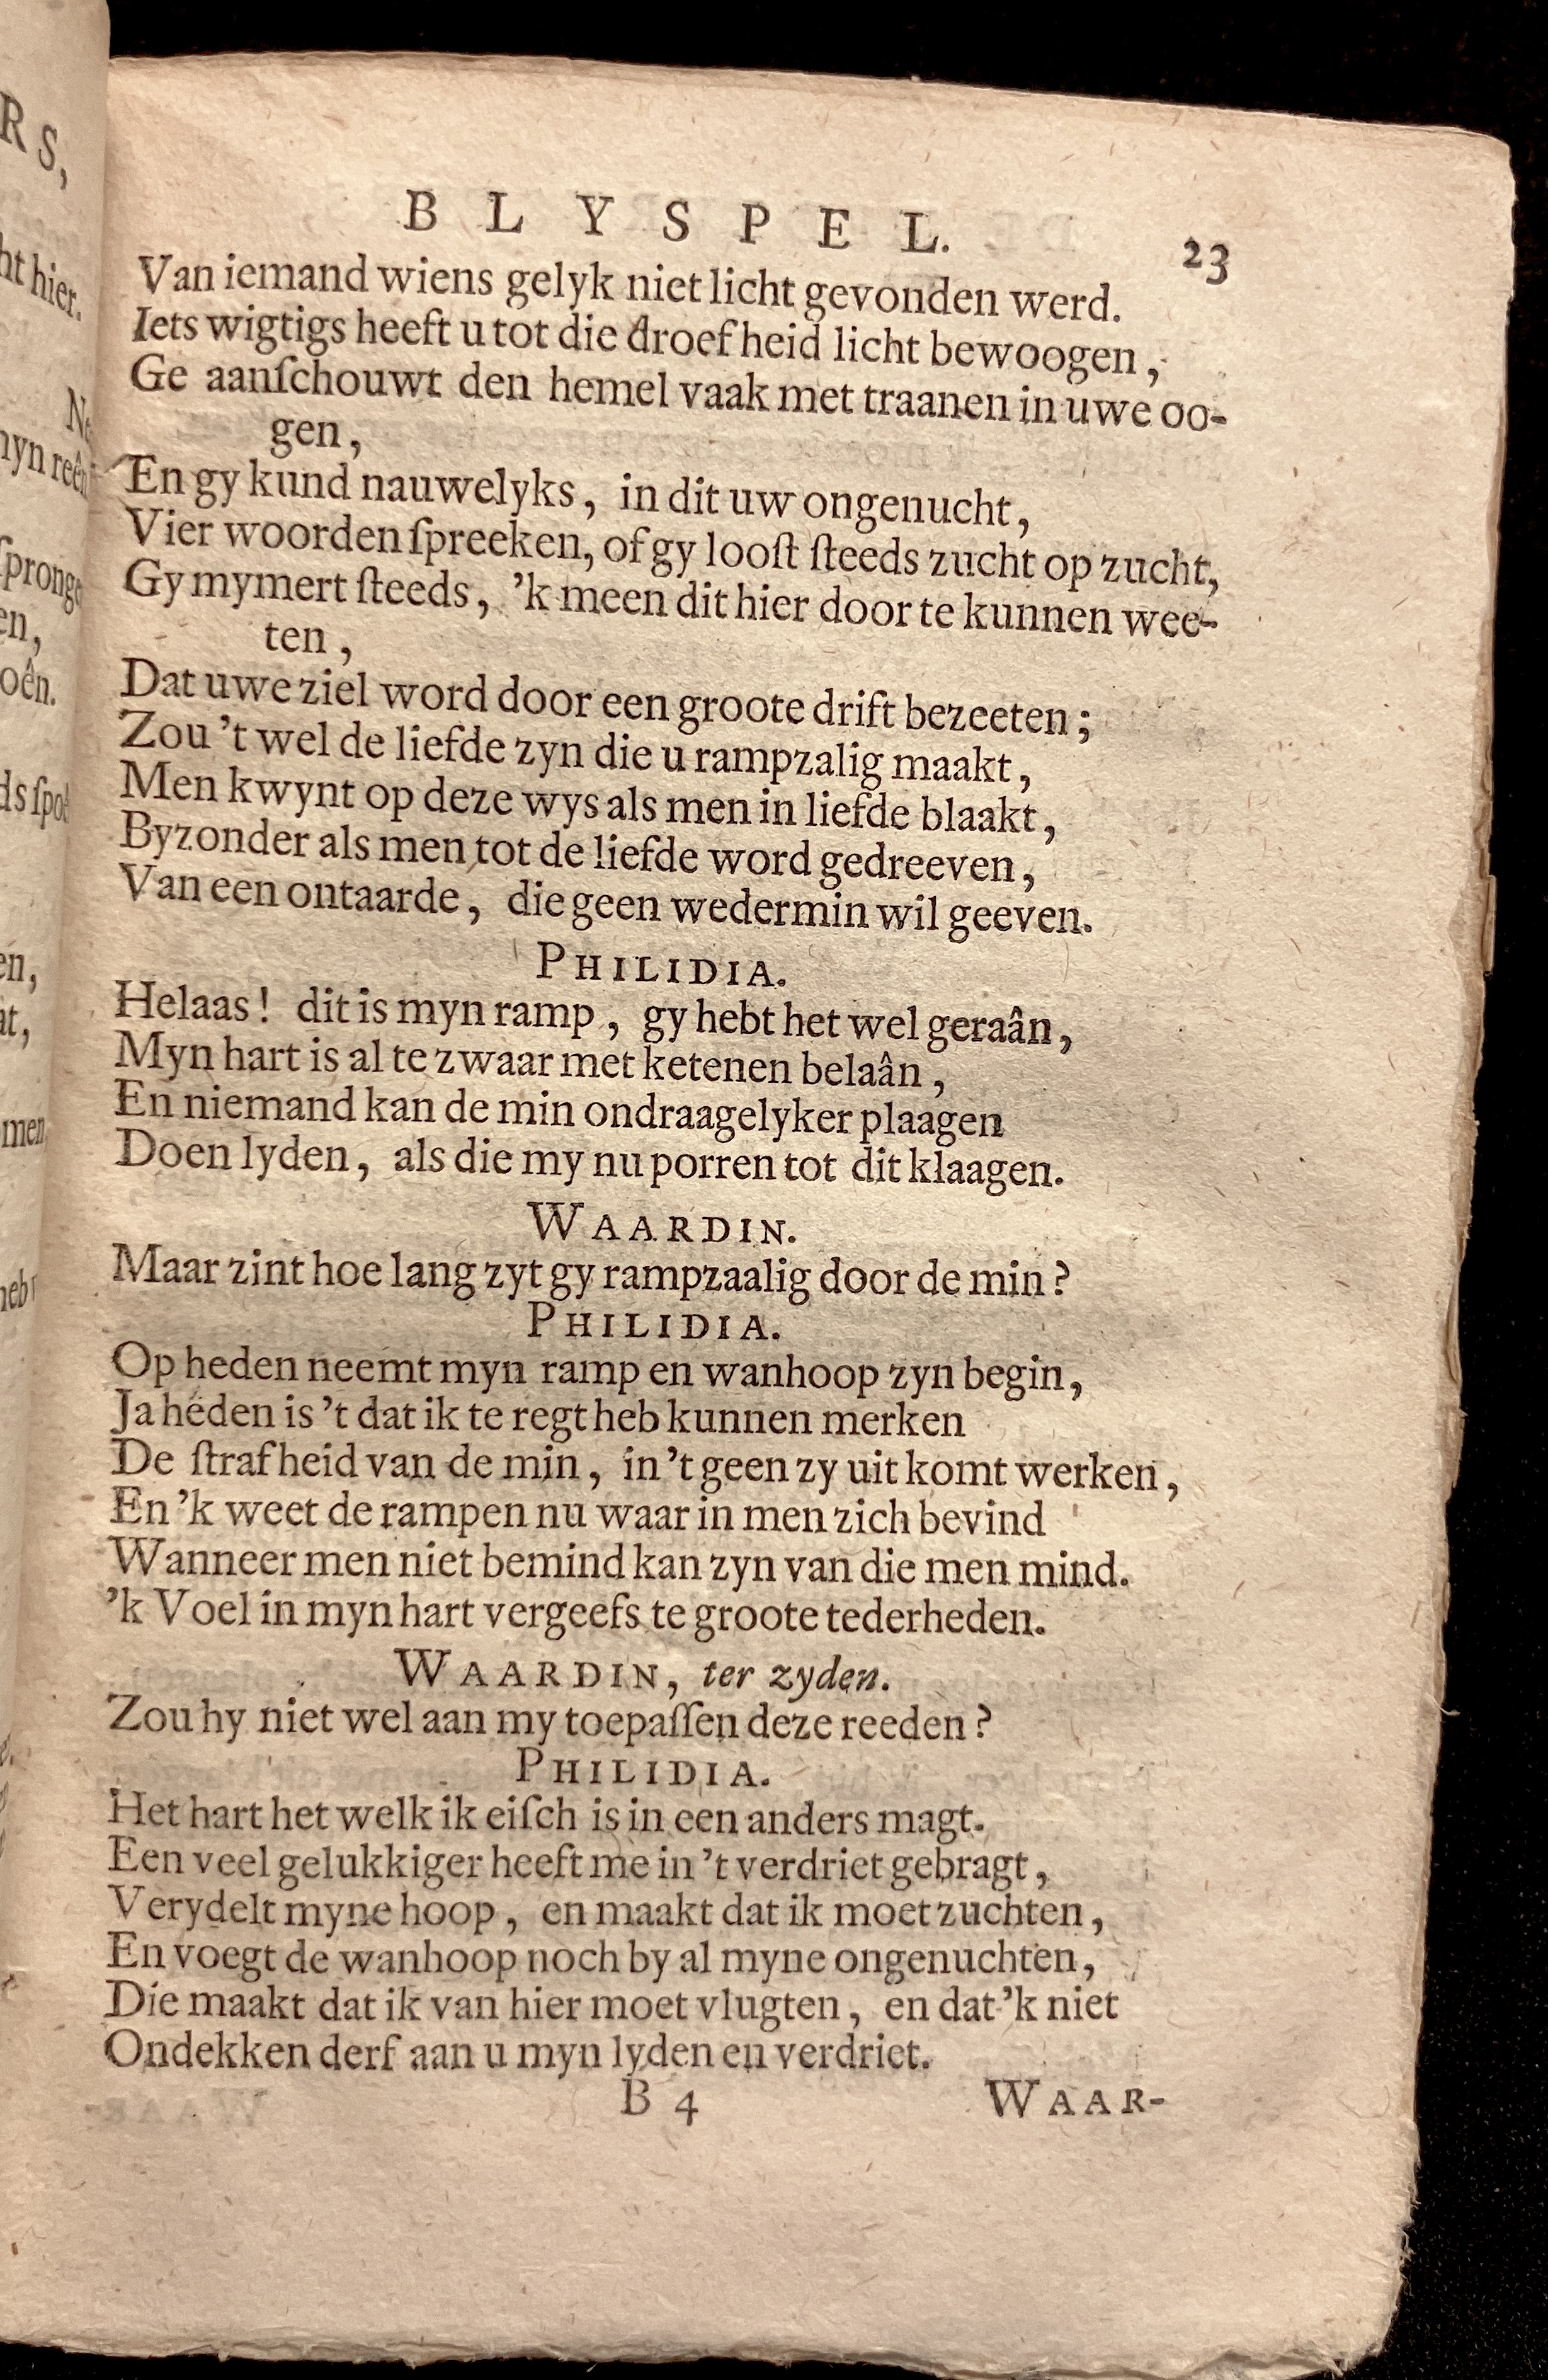 BLYSPEL. 23
Van iemand wiens gelyk niet licht gevonden werd.
Iets wigtigs heeft u tot die droefheid licht bewoogen,
Ge aanſchouwt den hemel vaak met traanen in uwe oo-
gen,
En gy kund nauwelyks, in dit uw ongenucht,
Vier woorden ſpreeken, of gy looſt ſteeds zucht op zucht,
Gy mymert ſteeds, 'k meen dit hier door te kunnen wee-
ten,
Dat uwe ziel word door een groote drift bezeeten;
Zou 't wel de liefde zyn die u rampzalig maakt,
Men kwynt op deze wys als men in liefde blaakt,
Byzonder als men tot de liefde word gedreeven,
Van een ontaarde, die geen wedermin wil geeven.
PHILIDIA.
Helaas! dit is myn ramp, gy hebt het wel geraân,
Myn hart is al te zwaar met ketenen belaân,
En niemand kan de min ondraagelyker plaagen
Doen lyden, als die my nu porren tot dit klaagen.
WAARDIN.
Maar zint hoe lang zyt gy rampzaalig door de min?
PHILIDIA.
Op heden neemt myn ramp en wanhoop zyn begin,
Ja heden is 't dat ik te regt heb kunnen merken
De ſtrafheid van de min, in 't geen zy uit komt werken,
En 'k weet de rampen nu waar in men zich bevind
Wanneer men niet bemind kan zyn van die men mind.
'k Voel in myn hart vergeefs te groote tederheden.
WAARDIN, ter zyden.
Zou hy niet wel aan my toepaſſen deze reeden?
PHILIDIA.
Het hart het welk ik eiſch is in een anders magt.
Een veel gelukkiger heeft me in 't verdriet gebragt,
Verydelt myne hoop, en maakt dat ik moet zuchten,
En voegt de wanhoop noch by al myne ongenuchten,
Die maakt dat ik van hier moet vlugten, en dat 'k niet
Ondekken derf aan u myn lyden en verdriet.
B 4 WAAR-